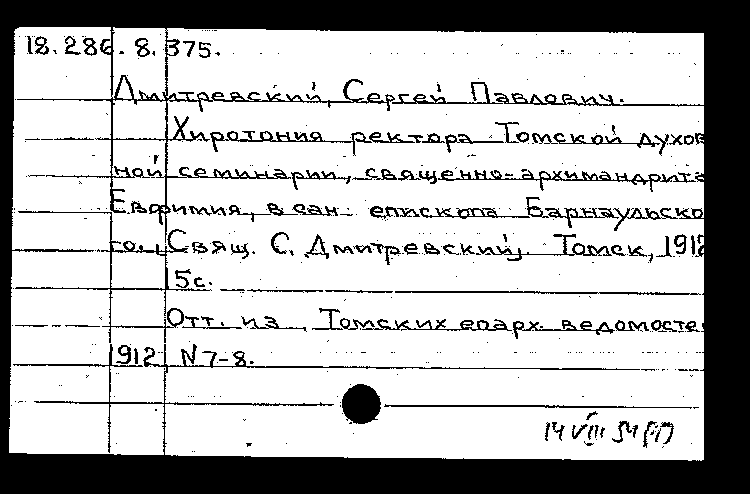 18.286.8.375.
Дмитревский, Сергей Павлович.
Хиротония ректора Томской духов
ной семинарии, священно-архимандрита
Евфимия, в сан епископа Барнаульско
го. Свящ. С. Дмитревский. Томск, 1912
15с.
Отт. из Томских епарх. ведомосте
1912 N 7-8.
14 VIII 54